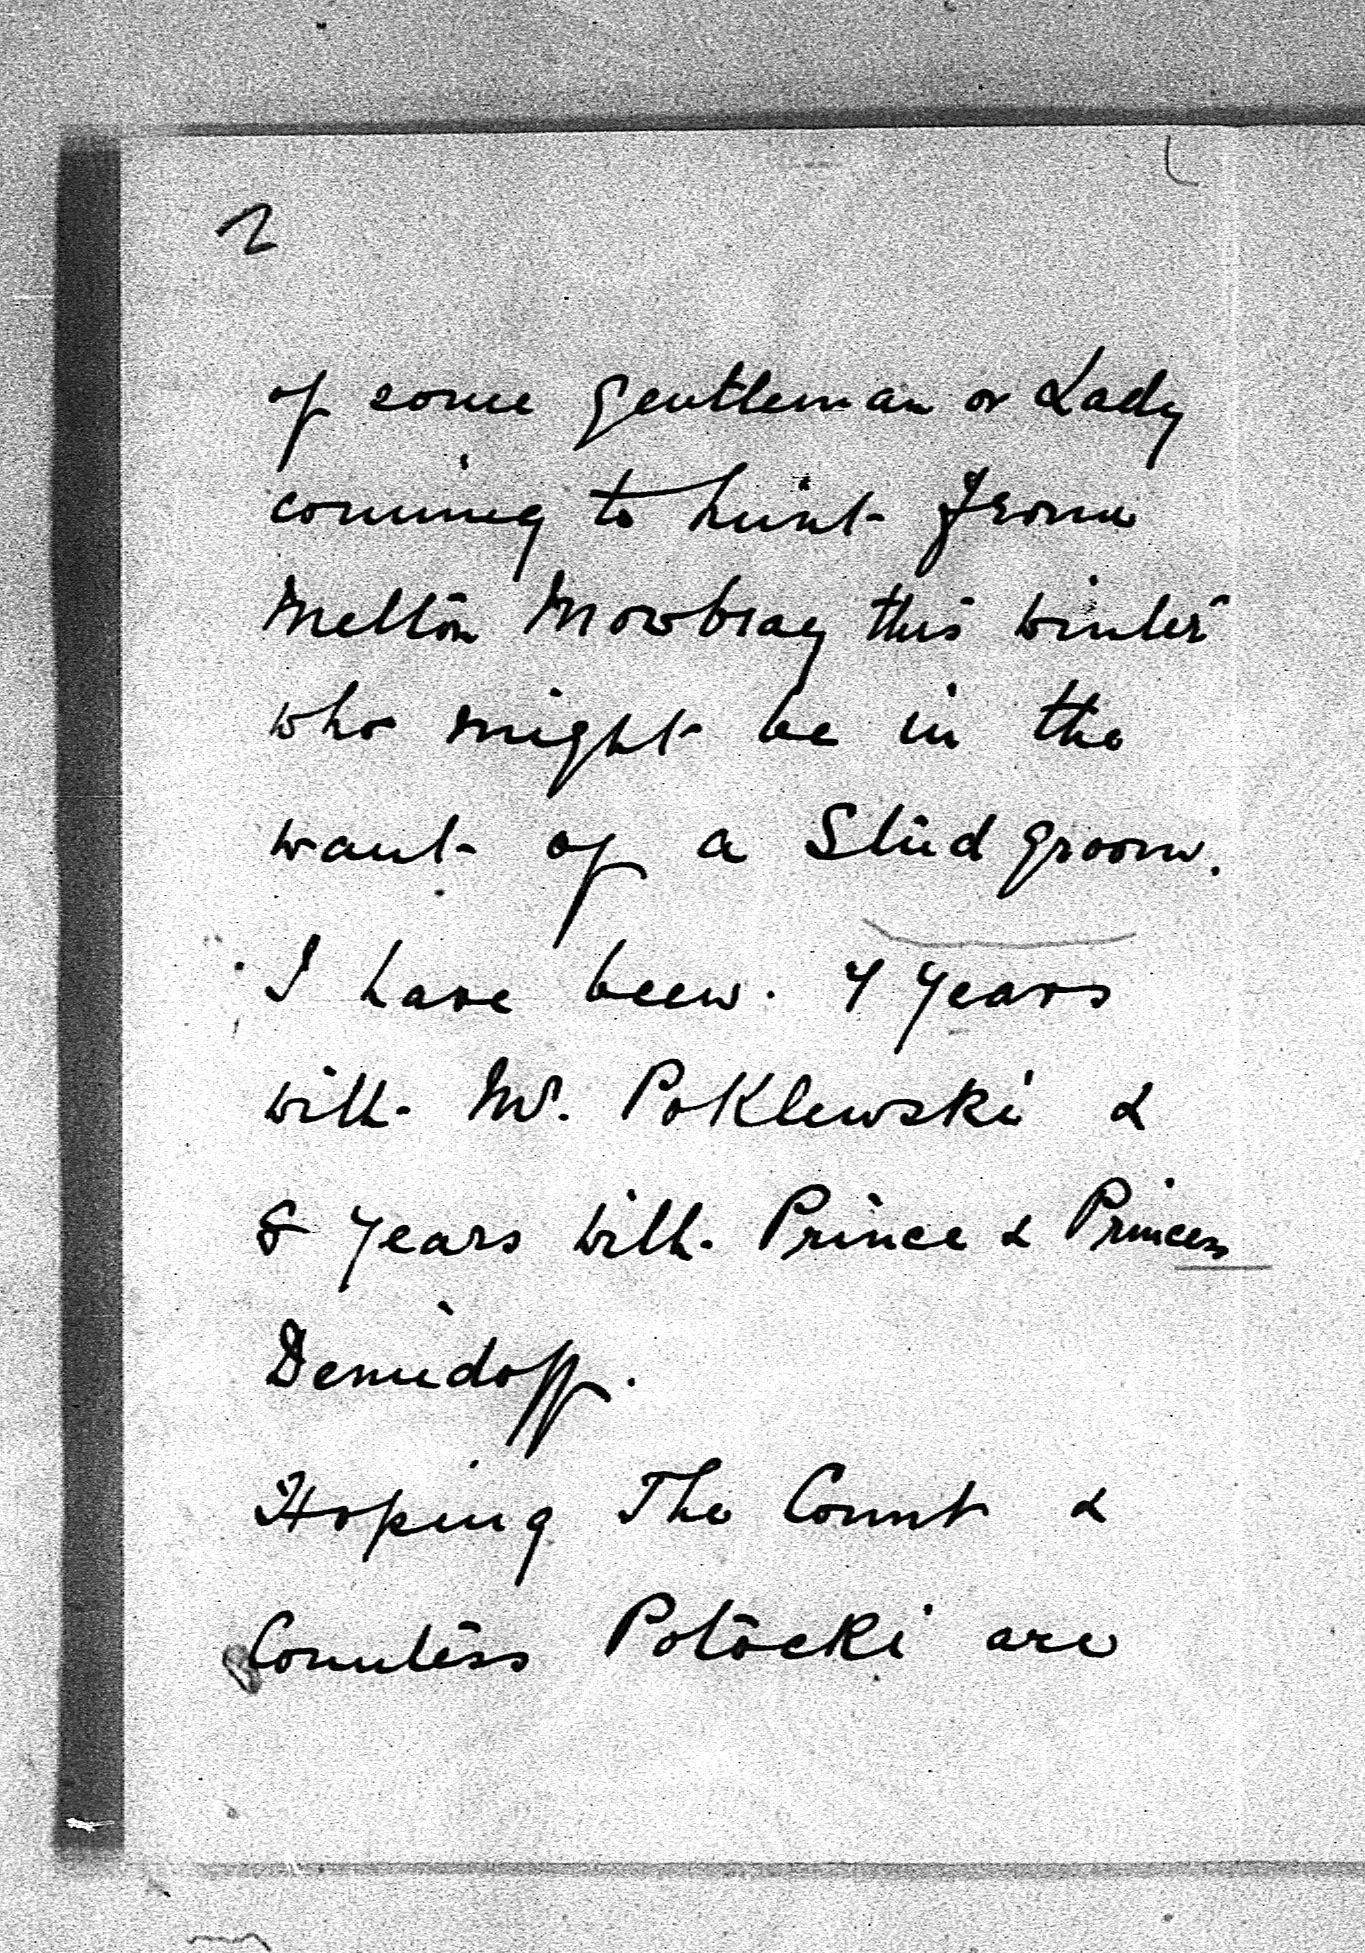 2
of some gentleman or Lady
coming to hunt from
Melton Mowbray this winter
who might be in the
want of a Stud groom.
I have been 4 years
with Mr. Poklewski &
8 years with Prince & Princess
Demidoff.
Hoping The Count &
Countess Potocki are